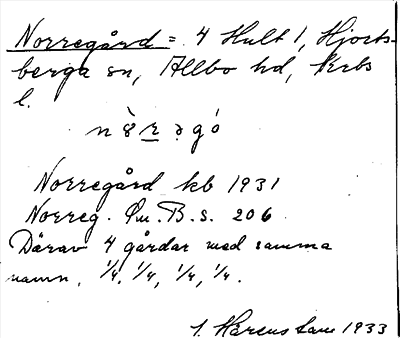 Norregård = 4 Hult 1, Hjorts-
berga sn, Allbo hd, Krbs
l.
Norregård kb 1931
Norreg. Gm. B. s. 206
Därav 4 gårdar med samma
namn. 1/4, 1/4, 1/4, 1/4.
1933